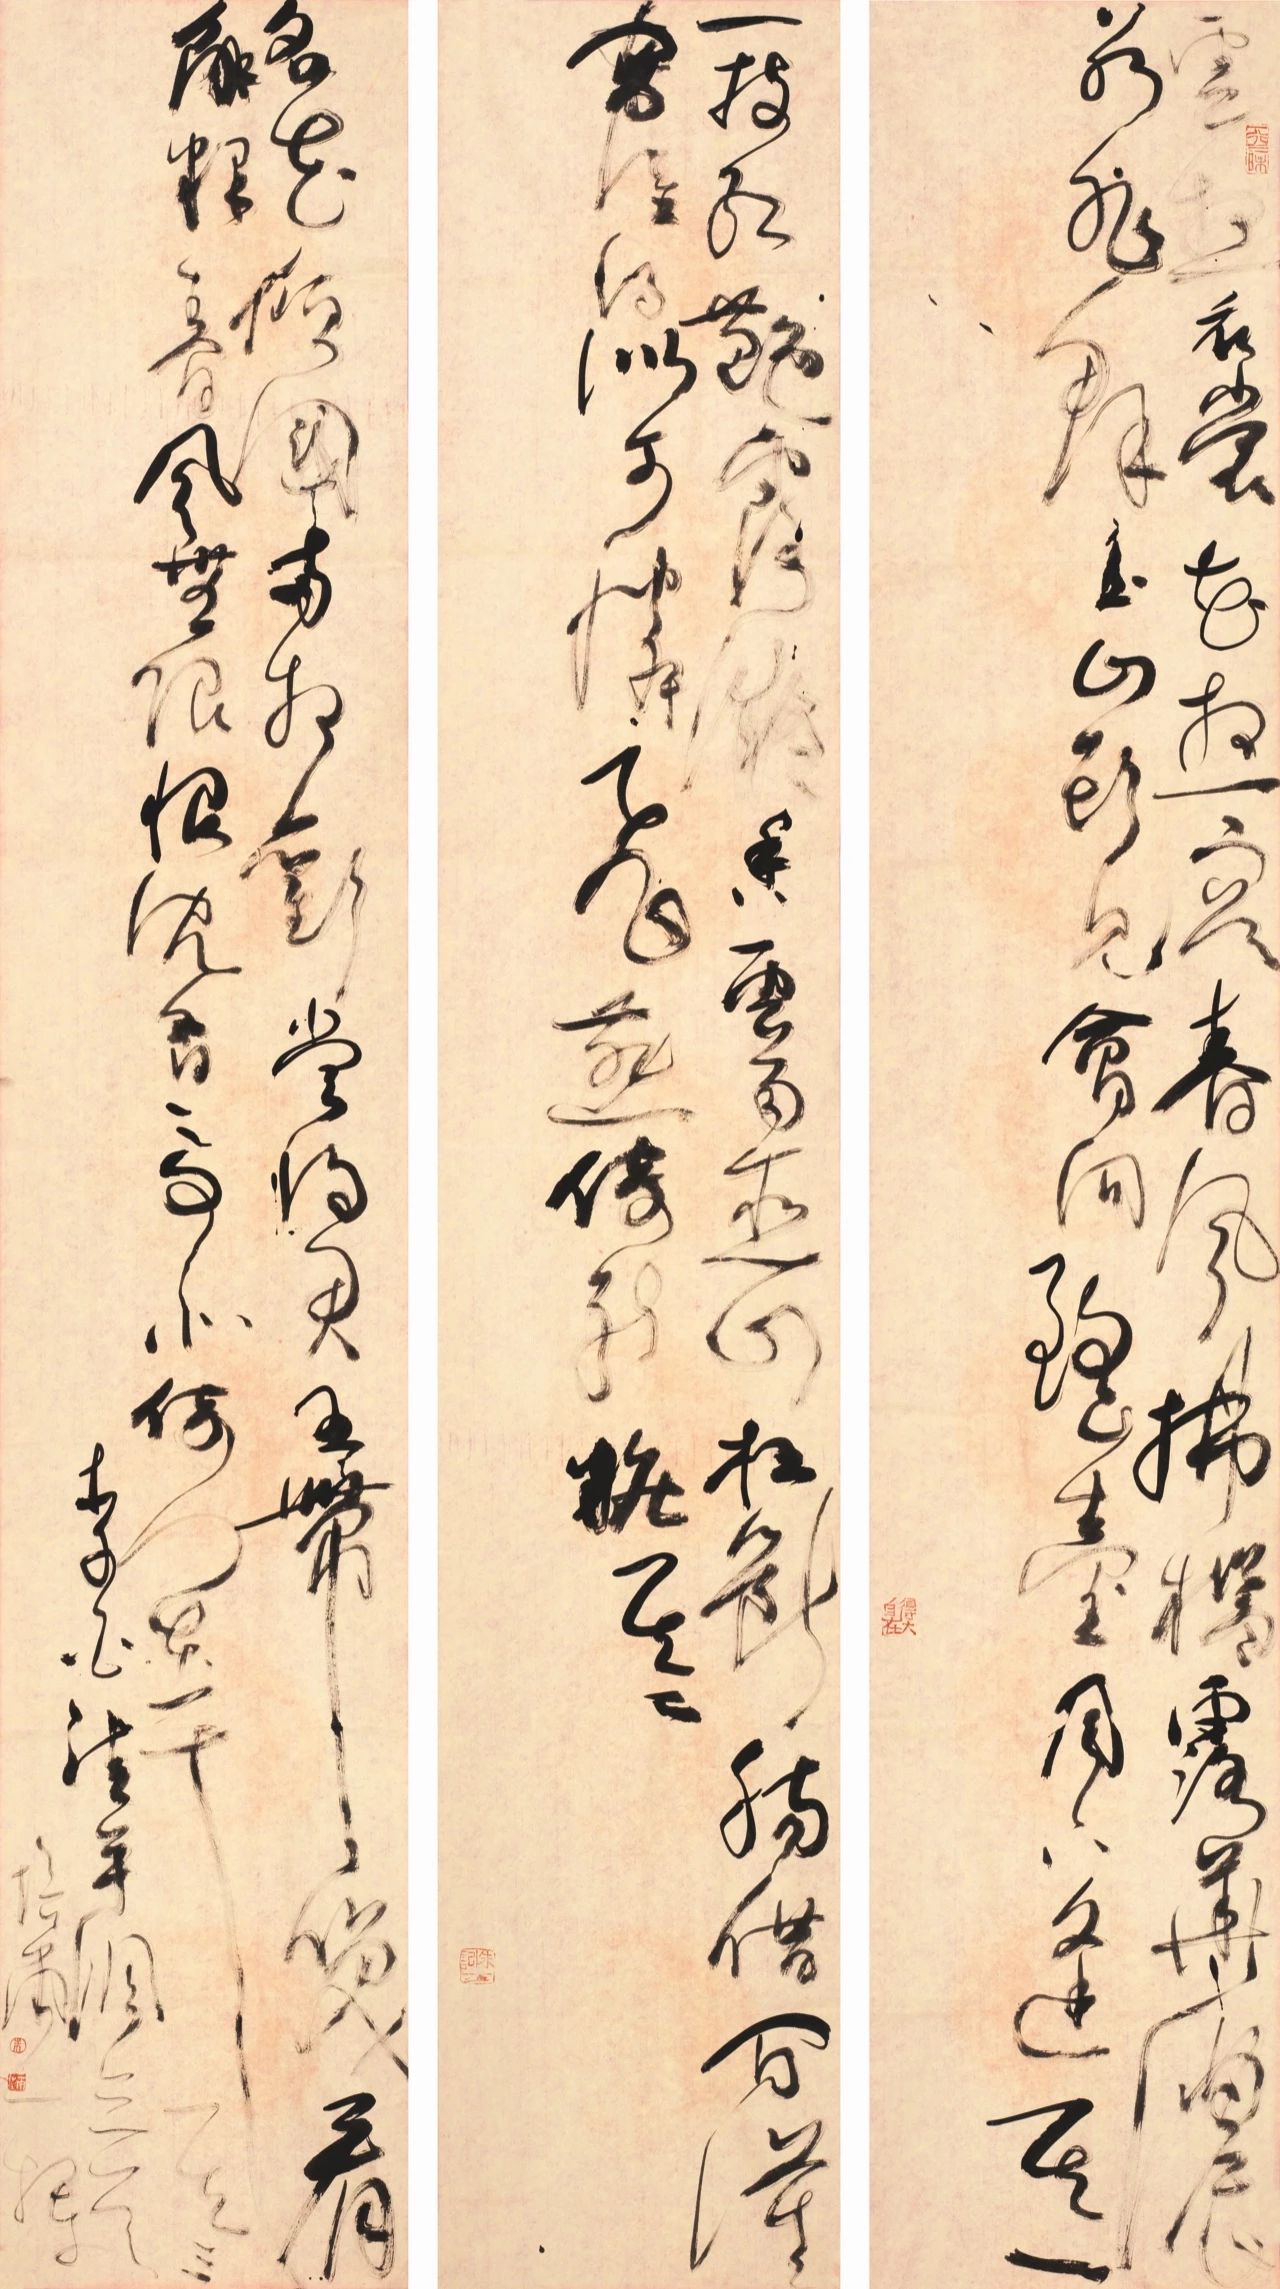 雲想衣裳花想容春風拂檻露華濃
若非群玉山頭見會向瑤臺月下逢其一
得大自在
一枝紅艷露凝香雲雨巫山枉斷腸借問漢
宮誰得似可憐飛燕倚新粧其二
名花傾國兩相歡常得君王帶笑看
解釋春風無限恨沈香亭北倚闌干其三
李白清平調三首